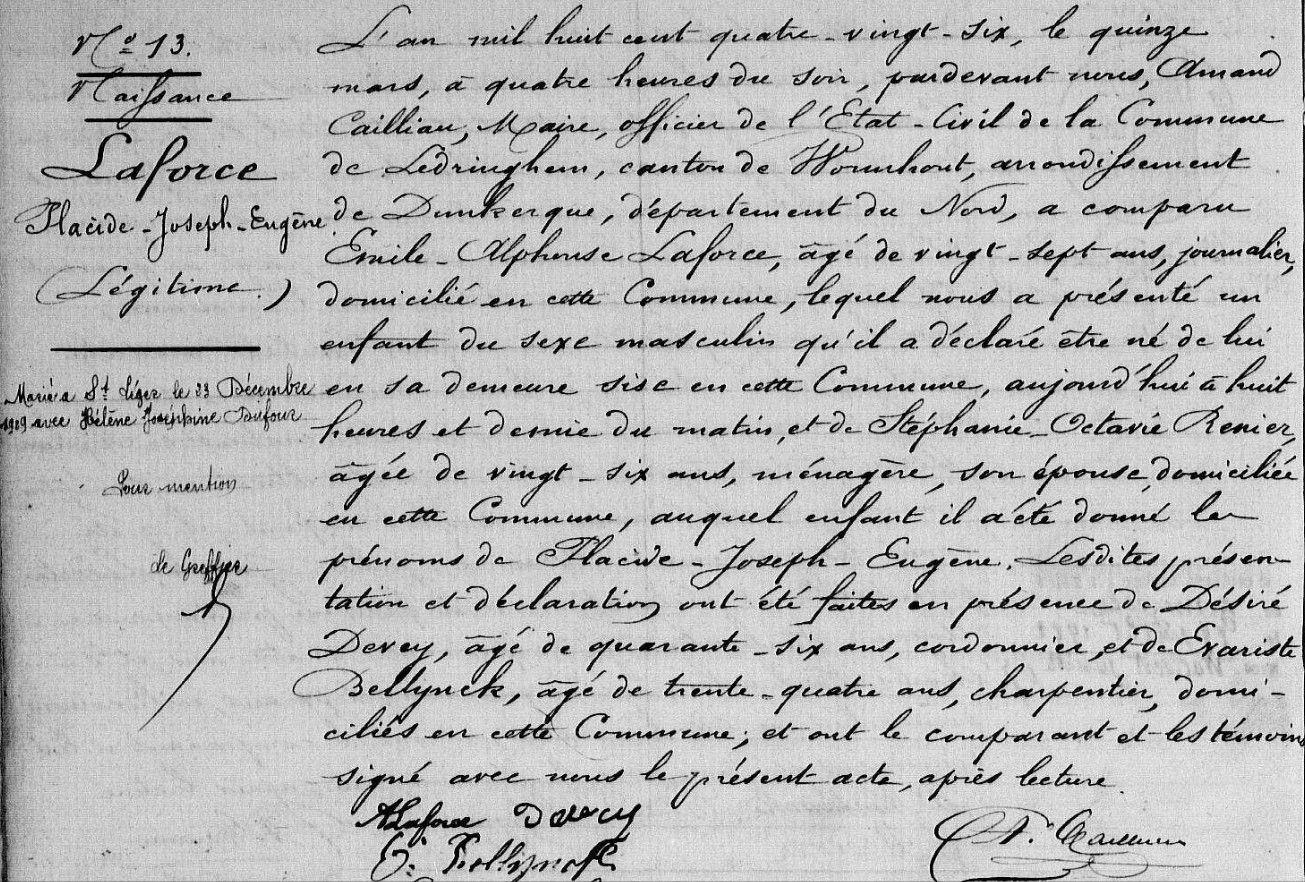 N° 13.
Naissance
Laforce
Placide-Joseph-Eugène
(Légitime.)
Marié à St Léger le 23 Décembre
1909 avec Hélène Joséphine Dufour
Pour mention
Le Greffier
L'an mil huit cent quatre-vingt-six, le quinze
mars, à quatre heures du soir, pardevant nous, Amand
Cailliau, Maire, officier de l'Etat-Civil de la Commune
de Ledringhem, canton de Wormhout, arrondissement
de Dunkerque, département du Nord, a comparu
Emile-Alphonse Laforce, âgé de vingt-sept ans, journalier,
domicilié en cette Commune, lequel nous a présenté un
enfant du sexe masculin qu'il a déclaré être né de lui
en sa demeure sise en cette Commune, aujourd'hui à huit
heures et demie du matin, et de Stéphanie-Octavie Renier,
âgée de vingt-six ans, ménagère, son épouse, domiciliée
en cette Commune, auquel enfant il a été donné les
prénoms de Placide-Joseph-Eugène. Lesdites présen-
tation et déclaration ont été faites en présence de Désiré
Devey, âgé de quarante-six ans, cordonnier, et de Evariste
Bellynck, âgé de trente-quatre ans, charpentier, domi-
ciliés en cette Commune; et ont le comparant et les témoins
signé avec nous le présent acte, après lecture.
ALaforce Devey
E. Bellynck
A. Cailliau